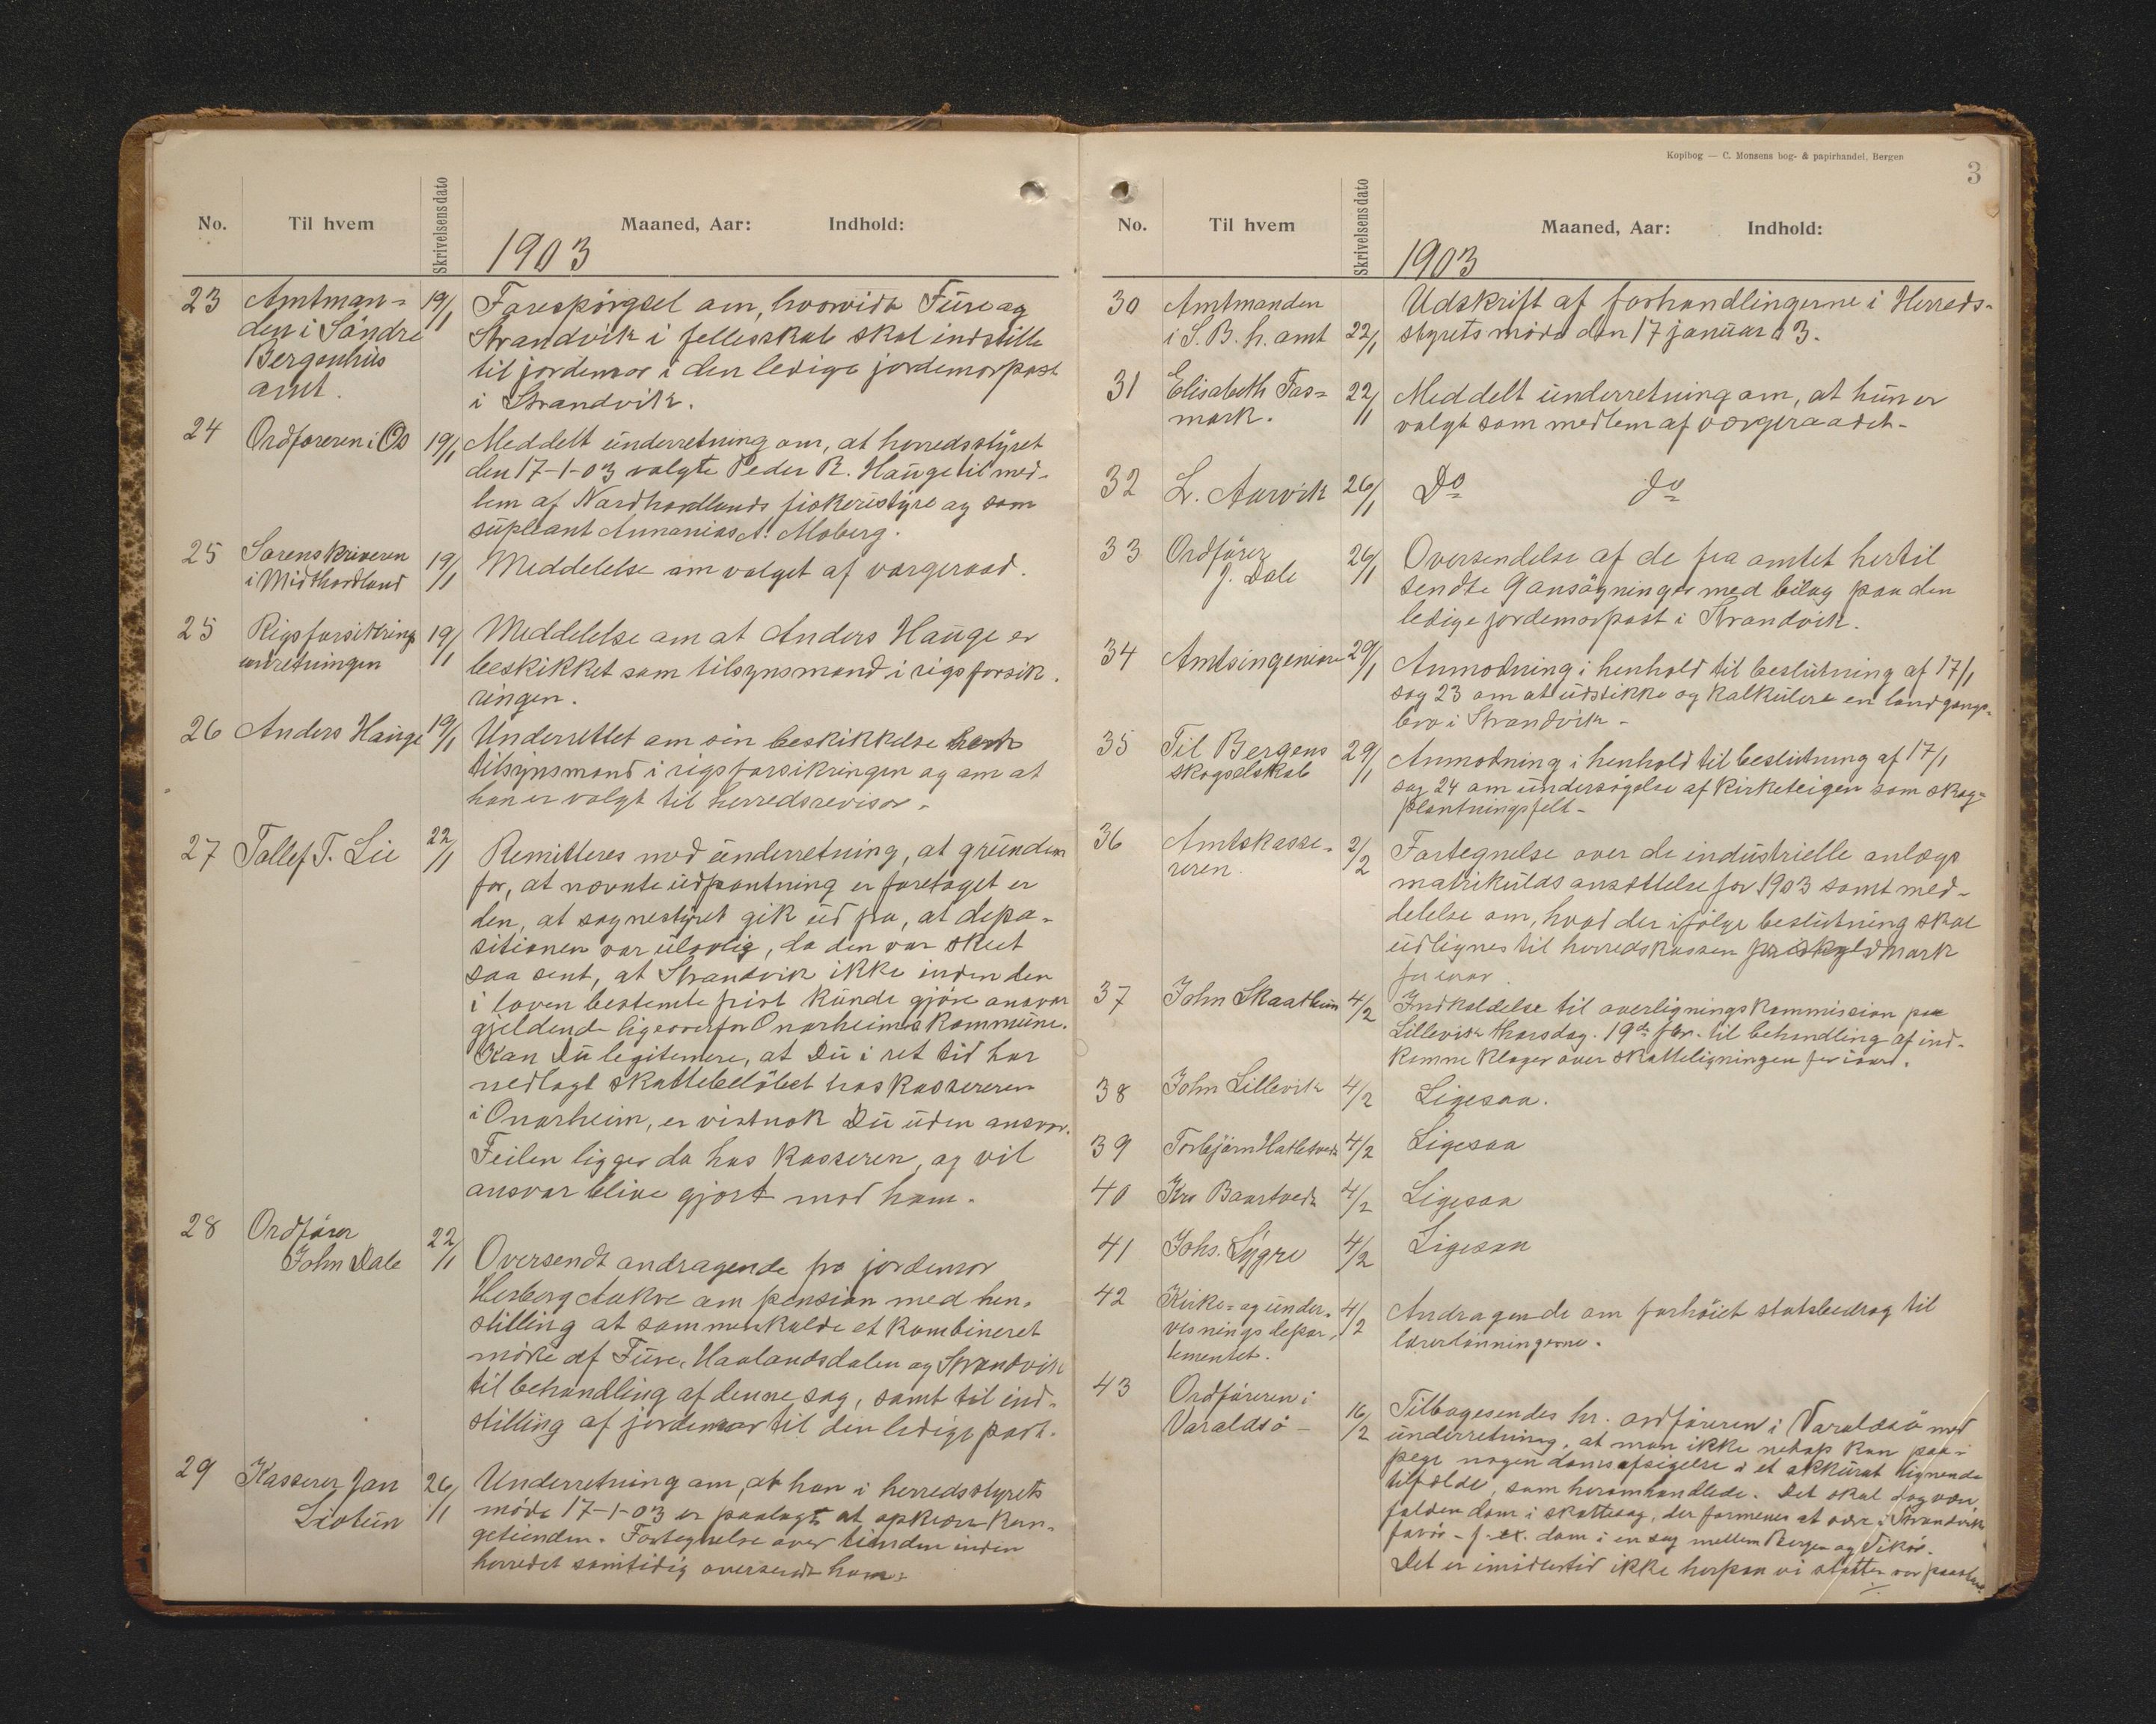 No. Til hvem Skrivelsensdato Maaned, Aar: Indhold:
1903
23 Amtman= 19/1 Forespørgsel om, hvorvidt Fuse og
den i Søndre Strandvik i fellesskab skal indstille
Bergenhus til jordemor i den ledige jordemorpost
amt. i Strandvik.
24 Ordføreren i Os 19/1 Meddelt underretning om, at herredsstyret
den 17-1-03 valgte Peder R. Hauge til med-
lem af Nordhordlands fiskeristyre og som
supleant Annanias A. Moberg.
25 Sorenskriveren 19/1 Meddelelse om valget af vergeraad.
i Midthordland
25 Rigsforsikrings 19/1 Meddelelse om at Anders Hauge er
anretningen beskikket som tilsynsmand i rigsforsik.
ringen.
26 Anders Hauge 19/1 Underrettet om sin beskikkelse
tilsynsmand i rigsforsikringen og om at
han er valgt til herredsrevisor.
27 Tollef T. Lie 22/1 Remitteres med underretning, at grunden
for, at nævnte udpantning er foretaget er
den, at sognestyret gik ud fra, at depo-
sitionen var ulovlig, da den var skeet
saa sent, at Strandvik ikke inden den
i loven bestemte frist kunde gjøre ansvar
gjeldende ligeoverfor Onarheims kommune.
Kan Du legitimere, at Du i ret tid har
nedlagt skattebeløbet hos kassereren
i Onarheim, er vistnok Du uden ansvar.
Feilen ligger da hos kasseren, og vil
ansvar blive gjort mod ham.
28 Ordfører 22/1
John Dale Oversendt andragende fra jordemor
Herborg Aakre om pension med hen-
stilling at sammenkalde et kombineret
møde af Fuse, Haalandsdalen og Strandvik
til behandling af denne sag, samt til ind-
stilling af jordemor til den ledige post.
29 Kasserer Jan 26/1 Underretning om, at han i herredsstyrets
Liotun møde 17-1-03 er paalagt at opkræve kon-
getienden. Fortegnelse over tienden inden
herredet samtidig oversendt ham.
Kopibog — C. Monsens bog- & papirhandel, Bergen
3
No. Til hvem Skrivelsensdato Maaned, Aar: Indhold:
1903
30 Amtmanden Udskrift af forhandlingerne i Herreds-
i S. B. h. amt 22/1 styrets møde den 17 januar 03.
31 Elisabeth Fas= 22/1 Meddelt underretning om, at hun er
mark. valgt som medlem af værgeraadet.
32 L. Aarvik 26/1 Do do
33 Ordfører 26/1 Oversendelse af de fra amtet hertil
J. Dale sendte 9 ansøgninger med bilag paa den
ledige jordemorpost i Strandvik.
34 Amtsingeniøre 29/1 Anmodning i henhold til beslutning af 17/1
sag 23 om at udstikke og kalkulere en landgangs-
bro i Strandvik.
35 Til Bergens 29/1 Anmodning i henhold til beslutning af 17/1
skogselskab sag 24 om undersøgelse af kirketeigen som skog=
plantningsfelt.
36 Amtskasse= 2/2 Fortegnelse over de industrielle anlægs
reren. matrikulds ansættelse for 1903 samt med-
delelse om, hvad der ifølge beslutning skal
udlignes til herredskassen pr skyldmark
for iaar.
37 John Skaathun 4/2 Indkaldelse til overligningskommission paa
Lillevik thorsdag. 19de febr. til behandling af ind-
komne klager over skatteligningen for iaar.
38 John Lillevik 4/2 Ligesaa.
39 Torbjørn Hatletvedt 4/2 Ligesaa
40 Kr. Baartvedt 4/2 Ligesaa
41 Johs. Lygre 4/2 Ligesaa
42 Kirke= og under- 4/2 Andragende om forhøiet statsbedrag til
visnings depar- lærerlønningerne.
tementet.
43 Ordføreren i
Varaldsø 16/2 Tilbagesendes hr. ordføreren i Varaldsø med
underretning, at man ikke netop kan paa-
pege nogen domsafsigelse i et akkurat lignende
tilfælde, som heromhandlede. Det skal dog være
falden dom i skattesag, der formenes at være i Strandviks
favør - f. ex. dom i en sag mellem Bergen og Vikør.
Det er imidlertid ikke herpaa vi støtter vor paastand